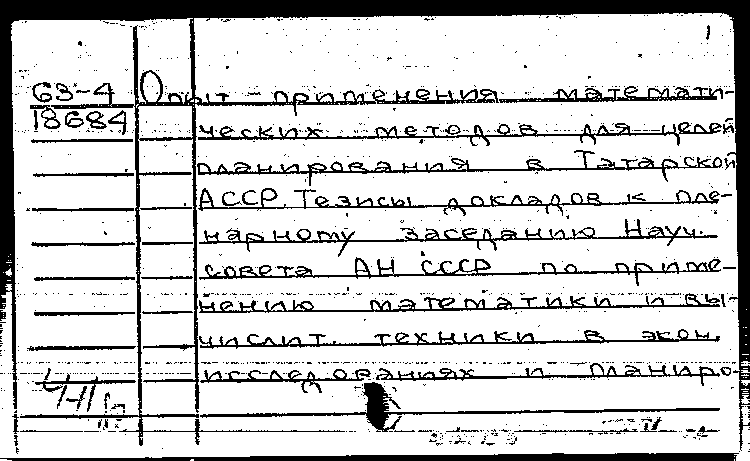 1
63-4 Опыт применения математи-
18684 ческих методов для целей
планирования в Татарской
АССР. Тезисы докладов к пле-
нарному заседанию Науч.
совета АН СССР по приме-
нению математики и вы-
числит. техники в экон.
исследованиях и планиро-